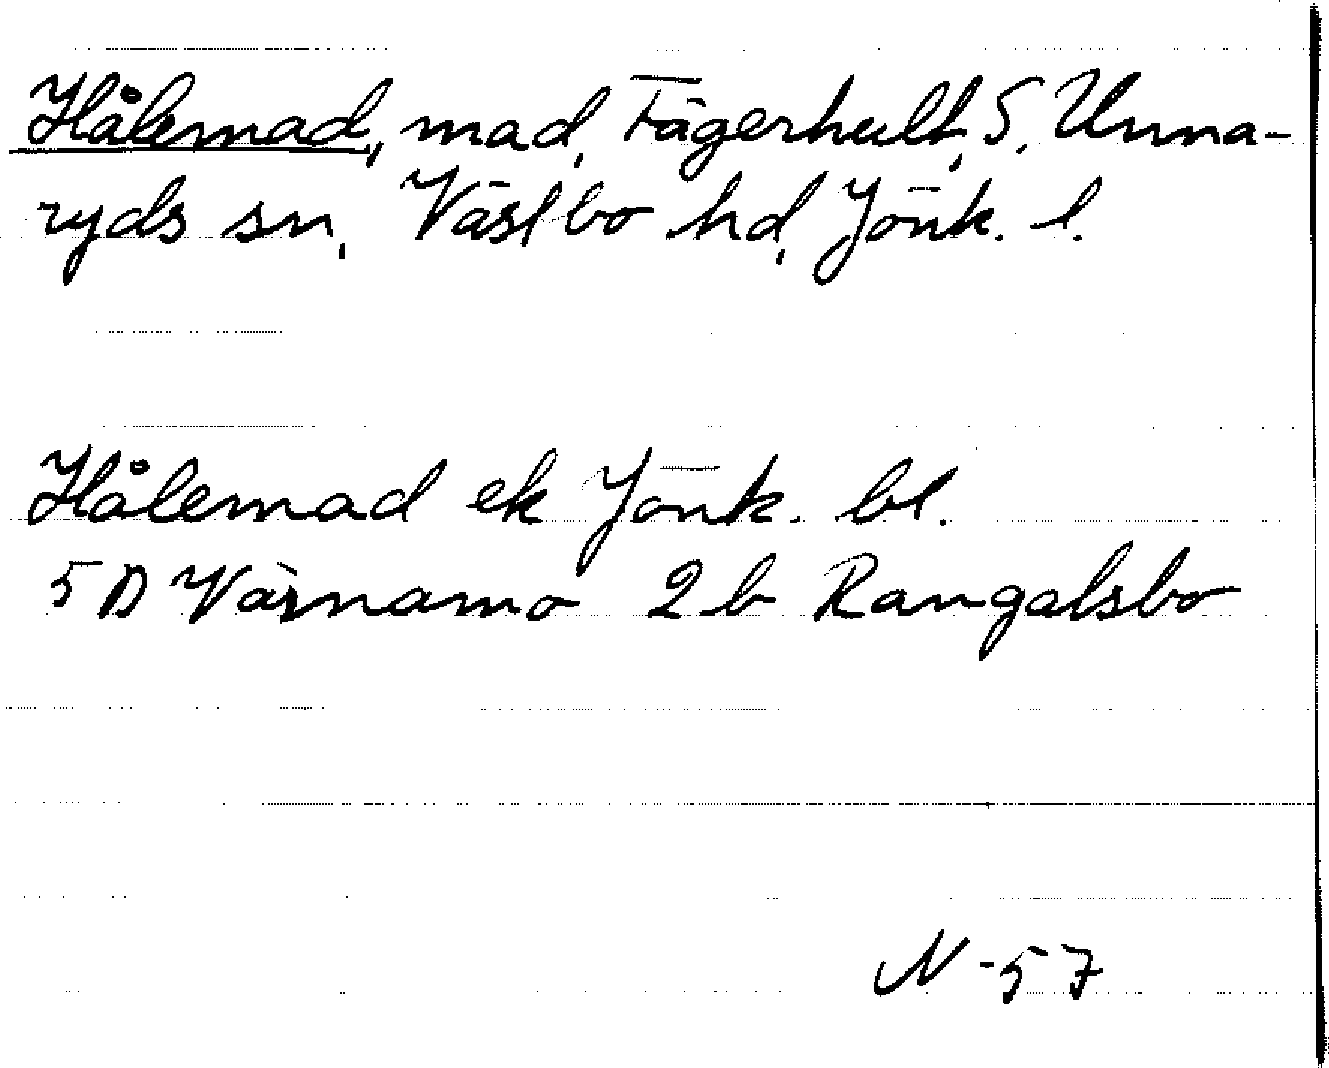 Hålemad, mad, Fägerhult, S. Unna-
ryds sn, Västbo hd, Jönk. l.
Hålemad ek Jönk. bl.
5 D Värnamo 2 b Rangelsbo
N -57